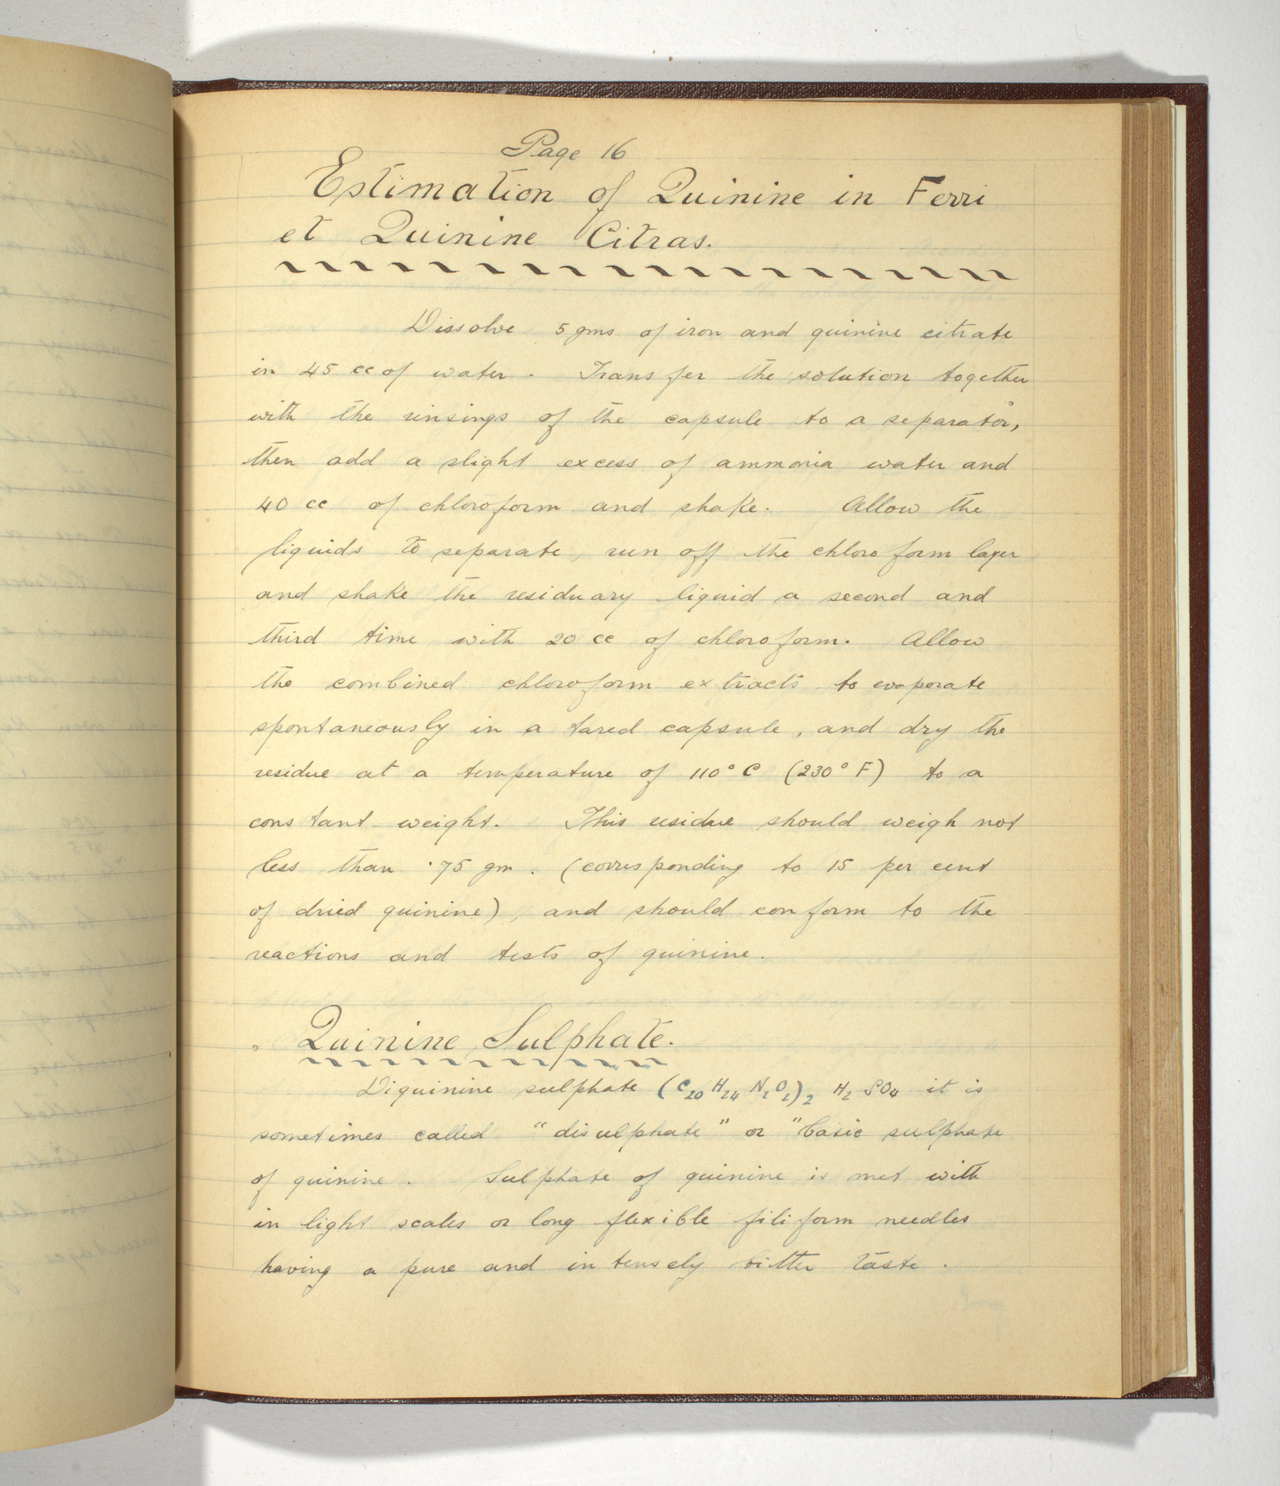 Page 16
Estimation of Quinine in Ferri
et Quinine Citras.
Dissolve 5 gms of iron and quinine citrate
in 45 cc of water. Transfer the solution together
with the rinsings of the capsule to a separator,
then add a slight excess of ammonia water and
40 cc of chloroform and shake. Allow the
liquids to separate, run off the chloroform layer
and shake the residuary liquid a second and
third time with 20 cc of chloroform. Allow
the combined chloroform extracts to evaporate
spontaneously in a tared capsule, and dry the
residue at a temperature of 110° C (230° F) to a
constant weight. This residue should weigh not
less than ·75 gm. (corresponding to 15 per cent
of dried quinine), and should conform to the
reactions and tests of quinine.
Quinine Sulphate.
Diquinine sulphate (C20 H24 N2 O2)2 H2 SO4 it is
sometimes called "disulphate" or "basic sulphate
of quinine. Sulphate of quinine is met with
in light scales or long flexible filiform needles
having a pure and intensely bitter taste.